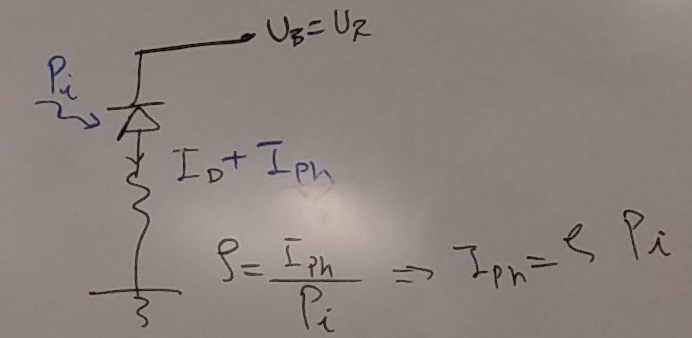 U_B = U_R
P_i
I_D + I_Ph
ρ = I_Ph / P_i ⇒ I_Ph = ρ P_i